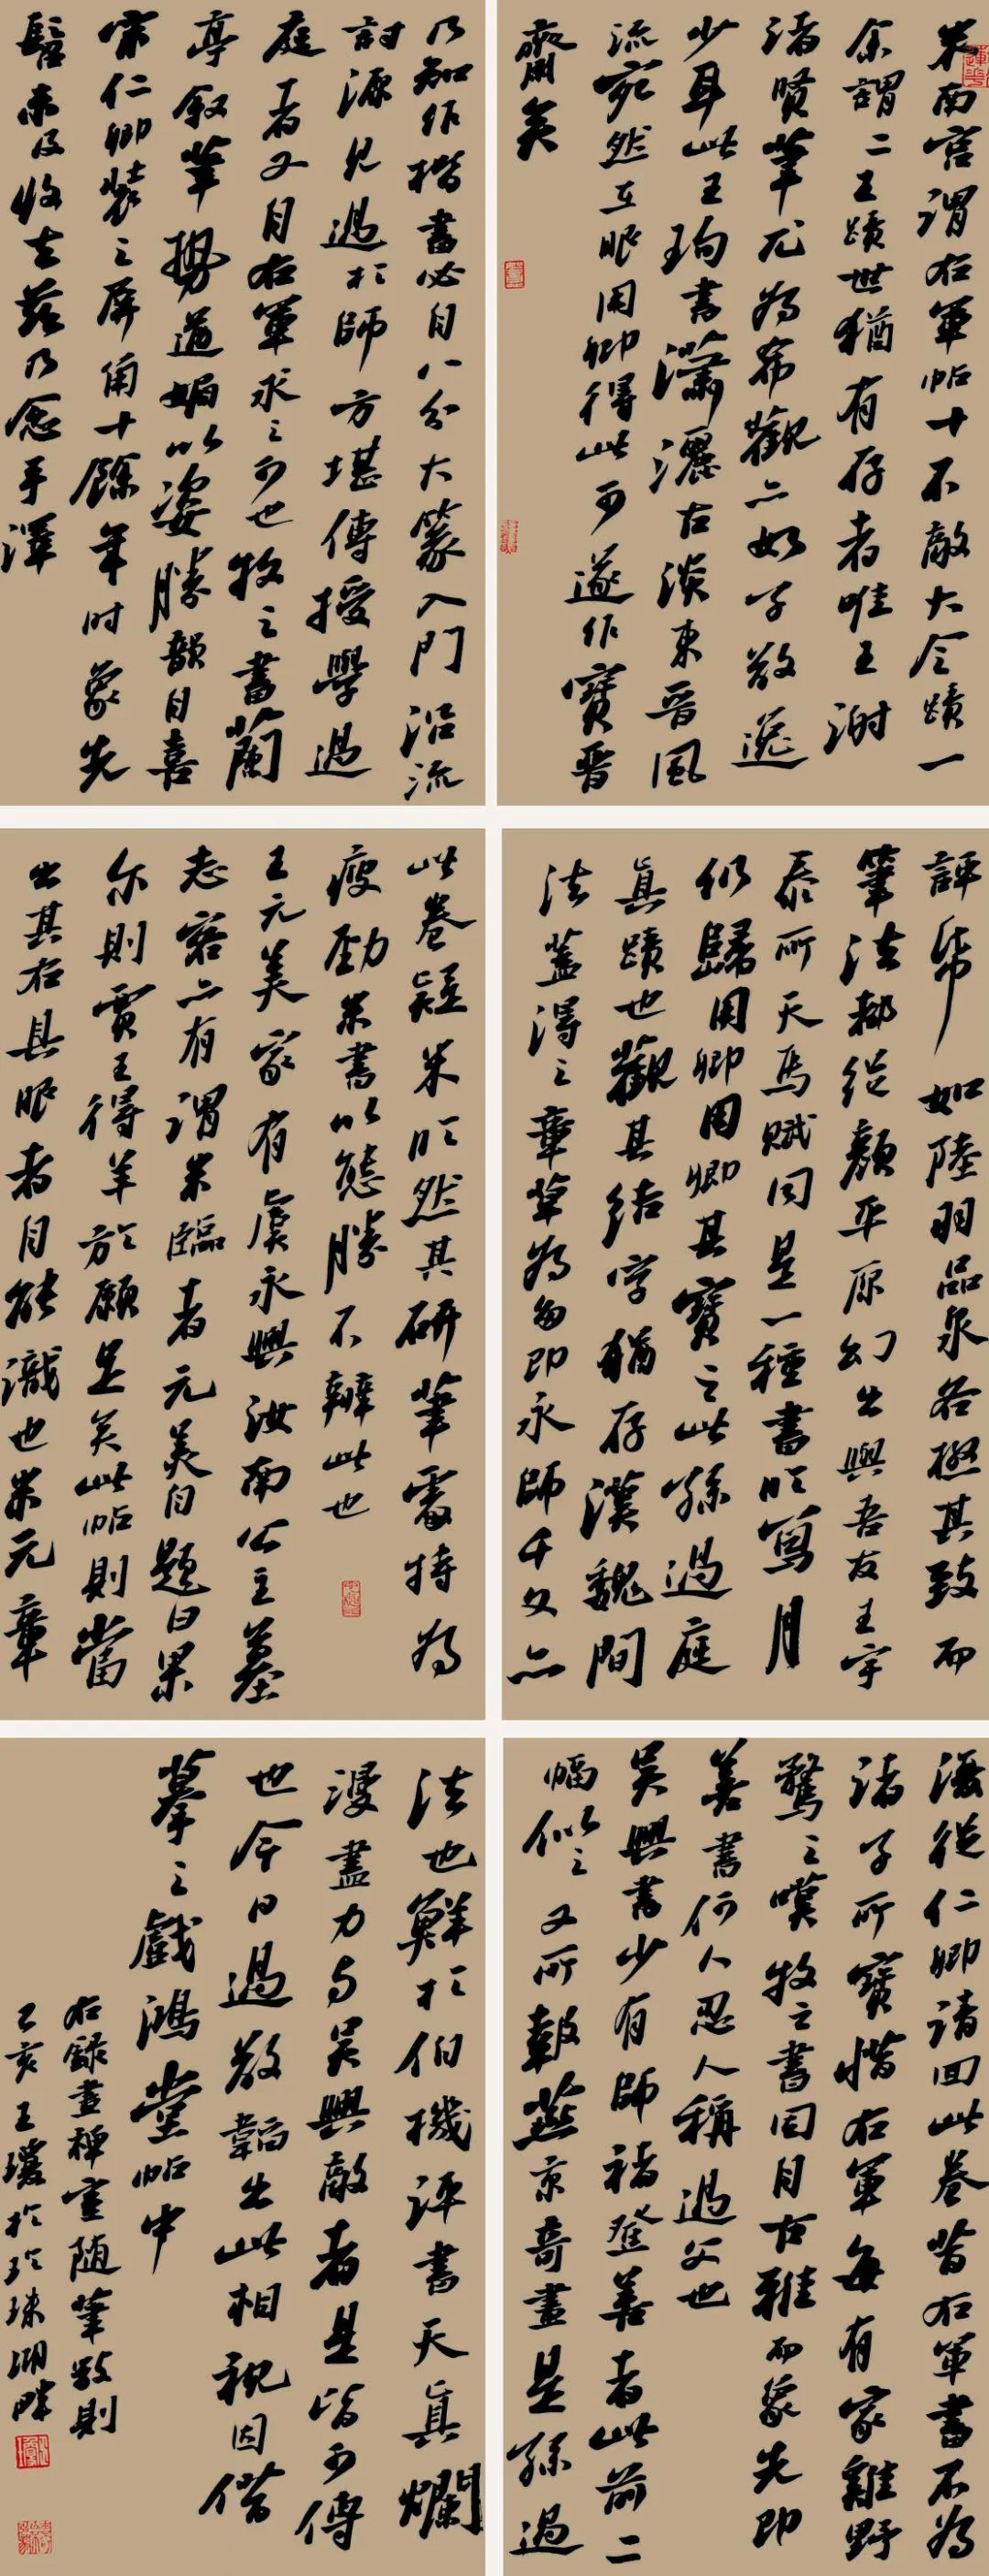 米南宫謂右軍帖十不敵大令蹟一
余謂二王蹟世猶有存者唯王謝
諸賢筆尤為希觀亦如子敬逸
少耳此王珣書瀟灑古淡東晋風
流宛然在眼用卿得此可遂作寶晋
齋矣
乃知作楷書必自八分大篆入門沿流
討源見過於師方堪傳授學過
庭者又自右軍求之可也牧之書蘭
亭叙筆勢遒媚以姿勝韻自喜
常仁卿裝之屏角十餘年时象先
髫未及收去茲乃念手澤
評帋如陸羽品泉各極其致而
筆法都從顏平原幻出與吾友王宇
泰所天馬賦同是一種書臨寫月
仍歸用卿用卿其寶之此孫過庭
真蹟也觀其結字猶存漢魏間
法蓋得之章草為多即永師千文亦
此卷疑米臨然其研筆處特為
瘦勁米書以態勝不辦此也
王元美家有虞永興汝南公主墓
志容亦有謂米臨者元美自題曰果
尔則買王得羊於願足矣此帖則當
出其右具眼者自能識也米元章
復從仁卿請回此卷昔右軍書不為
諸子所寶惜右軍每有家雞野
鶩之嘆牧之書因自古雅而象先即
善書何人忍人稱過父也
吴興書少有師褚登善者此前二
幅似之又所報燕京奇畫是孫過
法也鮮於伯機評書天真爛
漫盡力与吴興敵者是皆可傳
也今日過敬韜出此相視因借
摹之戲鴻堂帖中
右錄畫禪室随筆數則
乙亥王瓊於珍珠湖畔